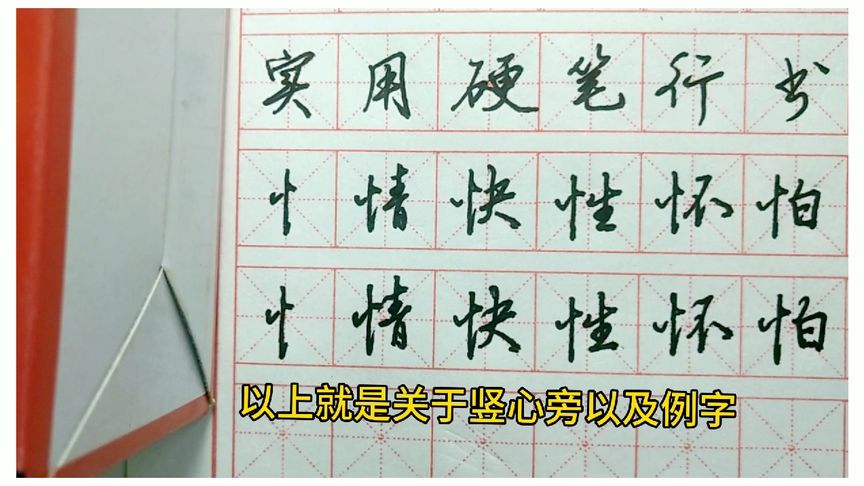 实用硬笔行书
忄情快性怀怕
忄情快性怀怕
以上就是关于竖心旁以及例字